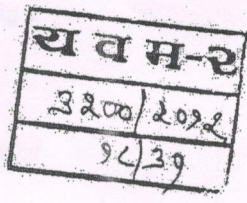 य व म-२
३२००/२०१२
१८/३१